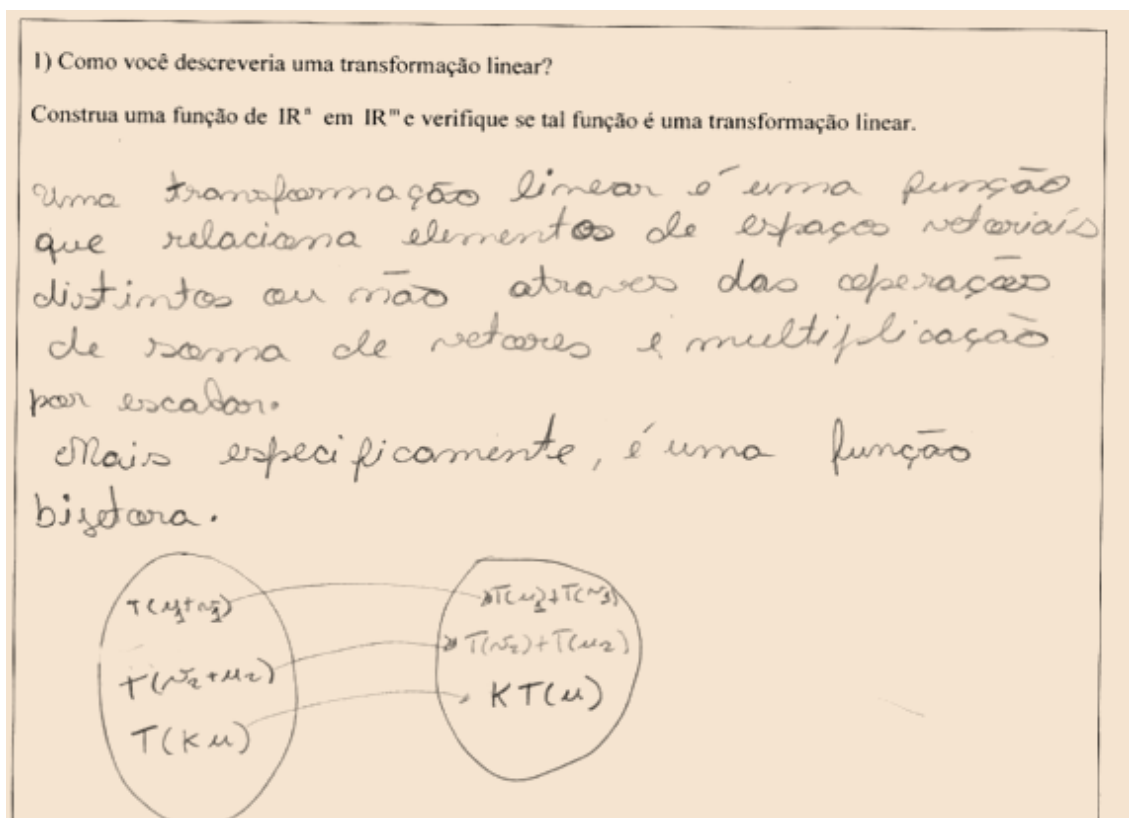 1) Como você descreveria uma transformação linear?
Construa uma função de IRⁿ em IRᵐ e verifique se tal função é uma transformação linear.
Uma transformação linear é uma função
que relaciona elementos de espaços vetoriais
distintos ou não atraves das operações
de soma de vetores e multiplicação
por escalar.
Mais especificamente, é uma função
bijetora.
T(u₁+v₁) T(u₁)+T(v₁)
T(v₂+u₂) T(v₂)+T(u₂)
T(Ku) KT(u)